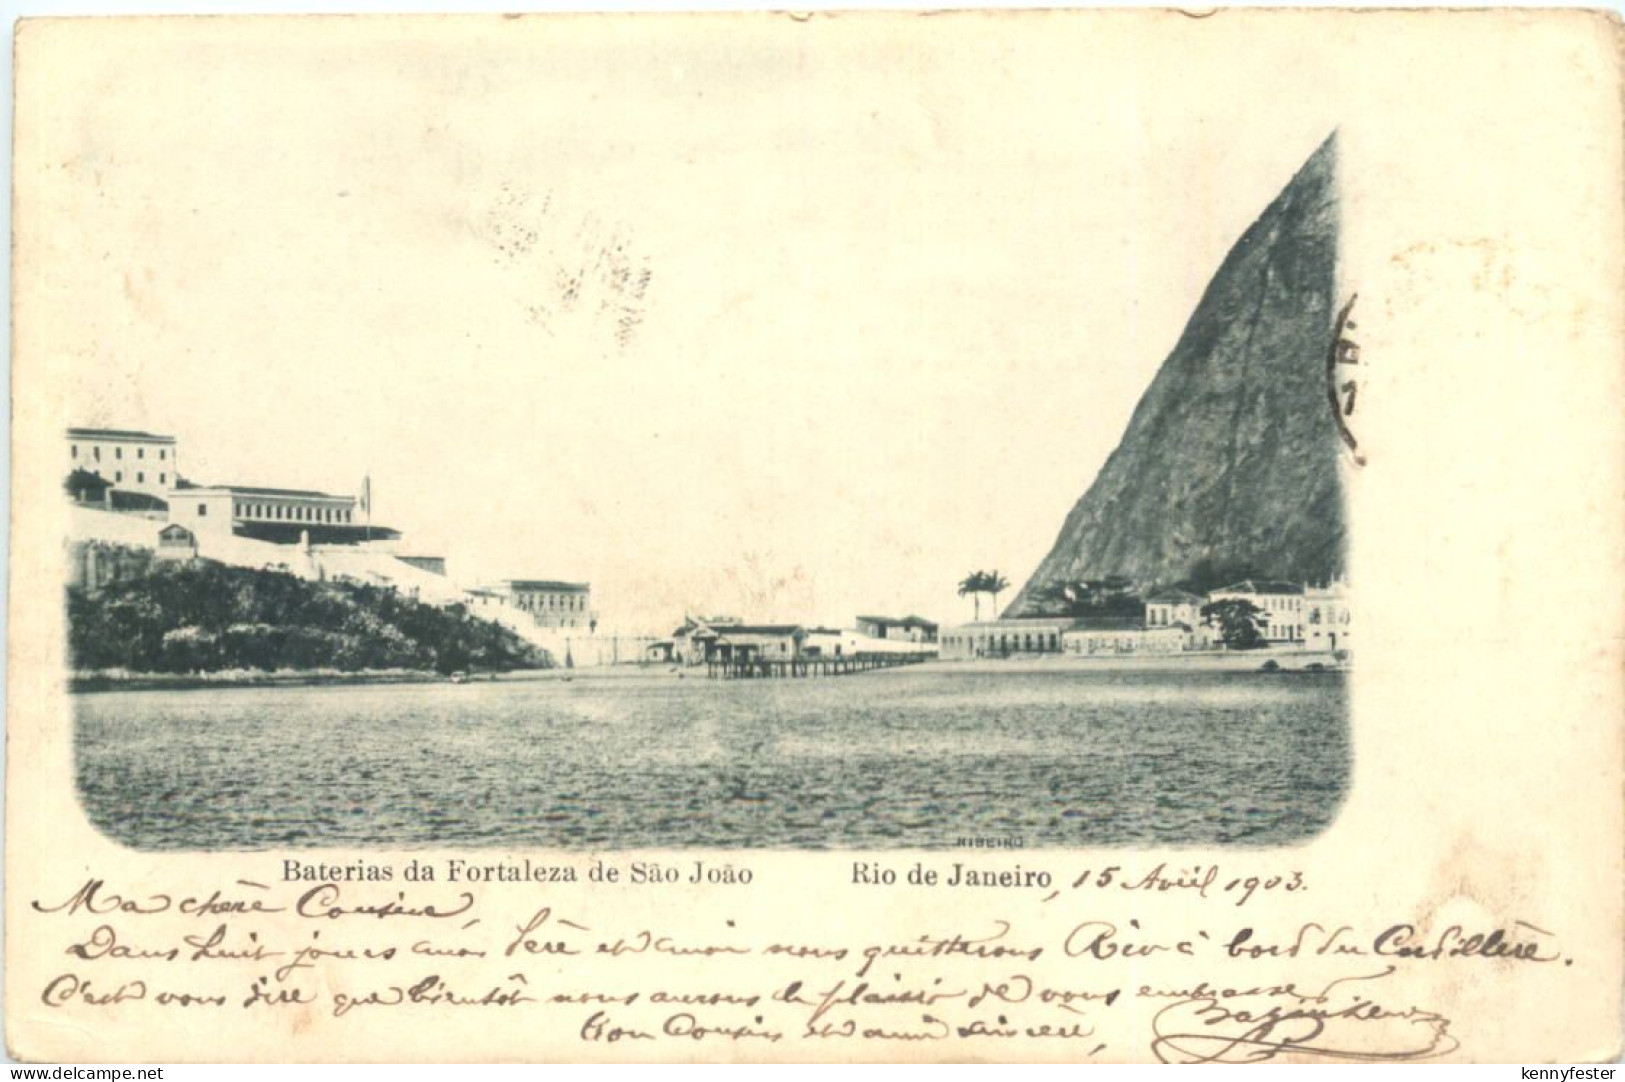 RIBEIRO
Baterias da Fortaleza de São João Rio de Janeiro, 15 Avril 1903.
Ma chère Cousine,
Dans huit jours mon Père et moi nous quitterons Rio à bord du Cordillère.
C'est vous dire que bientôt nous aurons le plaisir de vous embrasser
Ton Cousin et ami sincère,
delcampe.net
kennyfester